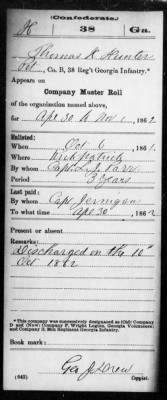 Confederate.
H 38 Ga.
Thomas K Hunter
Pvt, Co. B, 38 Reg't Georgia Infantry.*
Appears on
Company Muster Roll
of the organization named above,
for Apr 30 to Nov 1, 1862
Enlisted:
When Oct 6, 1861.
Where Kirkpatrick
By whom Capt.
Period 3 years
Last paid:
By whom Capt Jernigan
To what time Apr 30, 1862
Present or absent
Remarks:
Discharged on the 10"
Oct 1862
*This company was successively designated as (Old) Company
D and (New) Company F, Wright Legion, Georgia Volunteers,
and Company B, 38th Regiment Georgia Infantry.
Book mark:
Geo J Drew
(642) Copyist.